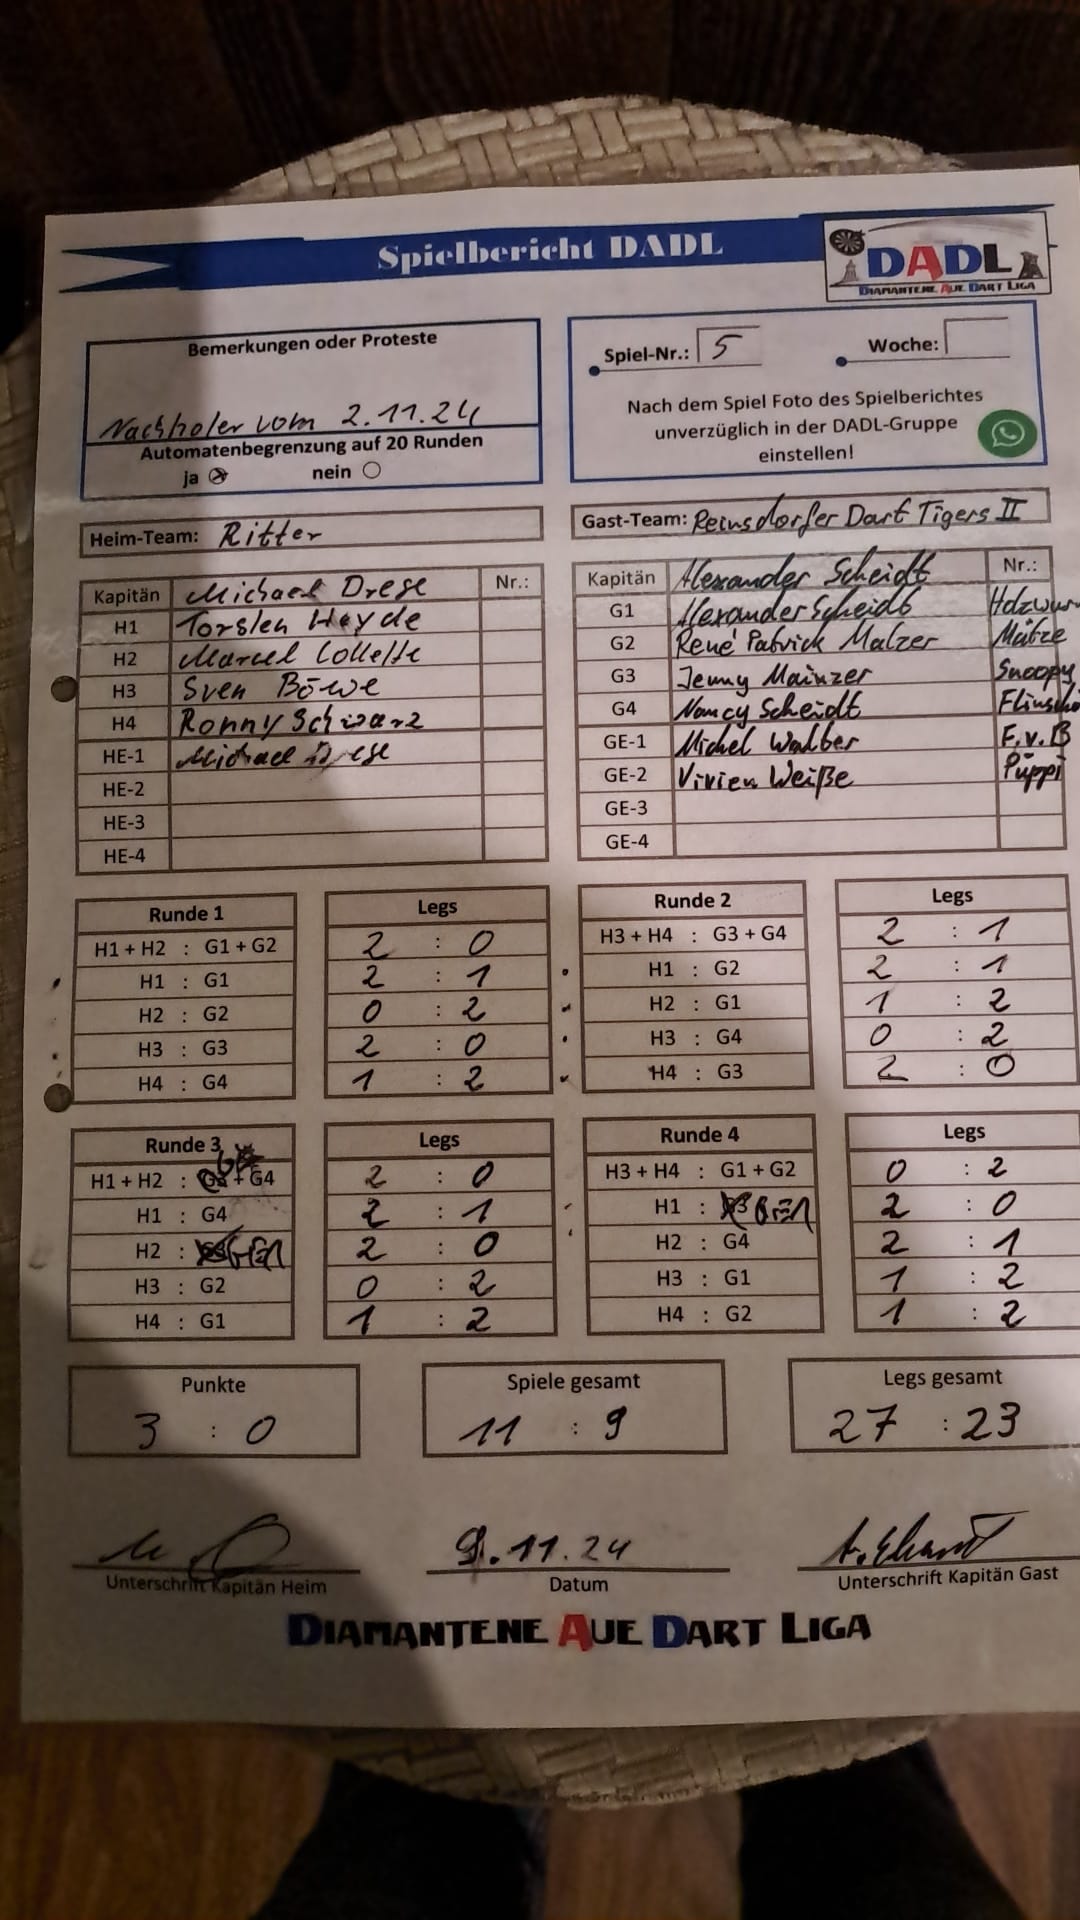 Spielbericht DADL
DADL
DIAMANTENE AUE DART LIGA
Bemerkungen oder Proteste
Nachholer vom 2.11.24
Automatenbegrenzung auf 20 Runden
ja nein
Spiel-Nr.: 5 Woche:
Nach dem Spiel Foto des Spielberichtes
unverzüglich in der DADL-Gruppe
einstellen!
Heim-Team: Ritter
Gast-Team: Reinsdorfer Dart Tigers II
Kapitän Michael Drese Nr.:
H1 Torsten Heyde
H2 Marcel Collette
H3 Sven Böwe
H4 Ronny Schwarz
HE-1 Michael Drese
HE-2
HE-3
HE-4
Kapitän Alexander Scheidt Nr.:
G1 Alexander Scheidt Holzwur
G2 René Patrick Malzer Mätze
G3 Jenny Mainzer Snoopy
G4 Nancy Scheidt
GE-1 Michel Walber F.v.B
GE-2 Vivien Weiße Püppi
GE-3
GE-4
Runde 1 Legs
H1 + H2 : G1 + G2 2 : 0
H1 : G1 2 : 1
H2 : G2 0 : 2
H3 : G3 2 : 0
H4 : G4 1 : 2
Runde 2 Legs
H3 + H4 : G3 + G4 2 : 1
H1 : G2 2 : 1
H2 : G1 1 : 2
H3 : G4 0 : 2
H4 : G3 2 : 0
Runde 3 Legs
H1 + H2 : + G4 2 : 0
H1 : G4 2 : 1
H2 : GE1 2 : 0
H3 : G2 0 : 2
H4 : G1 1 : 2
Runde 4 Legs
H3 + H4 : G1 + G2 0 : 2
H1 : GE1 2 : 0
H2 : G4 2 : 1
H3 : G1 1 : 2
H4 : G2 1 : 2
Punkte
3 : 0
Spiele gesamt
11 : 9
Legs gesamt
27 : 23
9.11.24
Unterschrift Kapitän Heim
Datum
Unterschrift Kapitän Gast
DIAMANTENE AUE DART LIGA